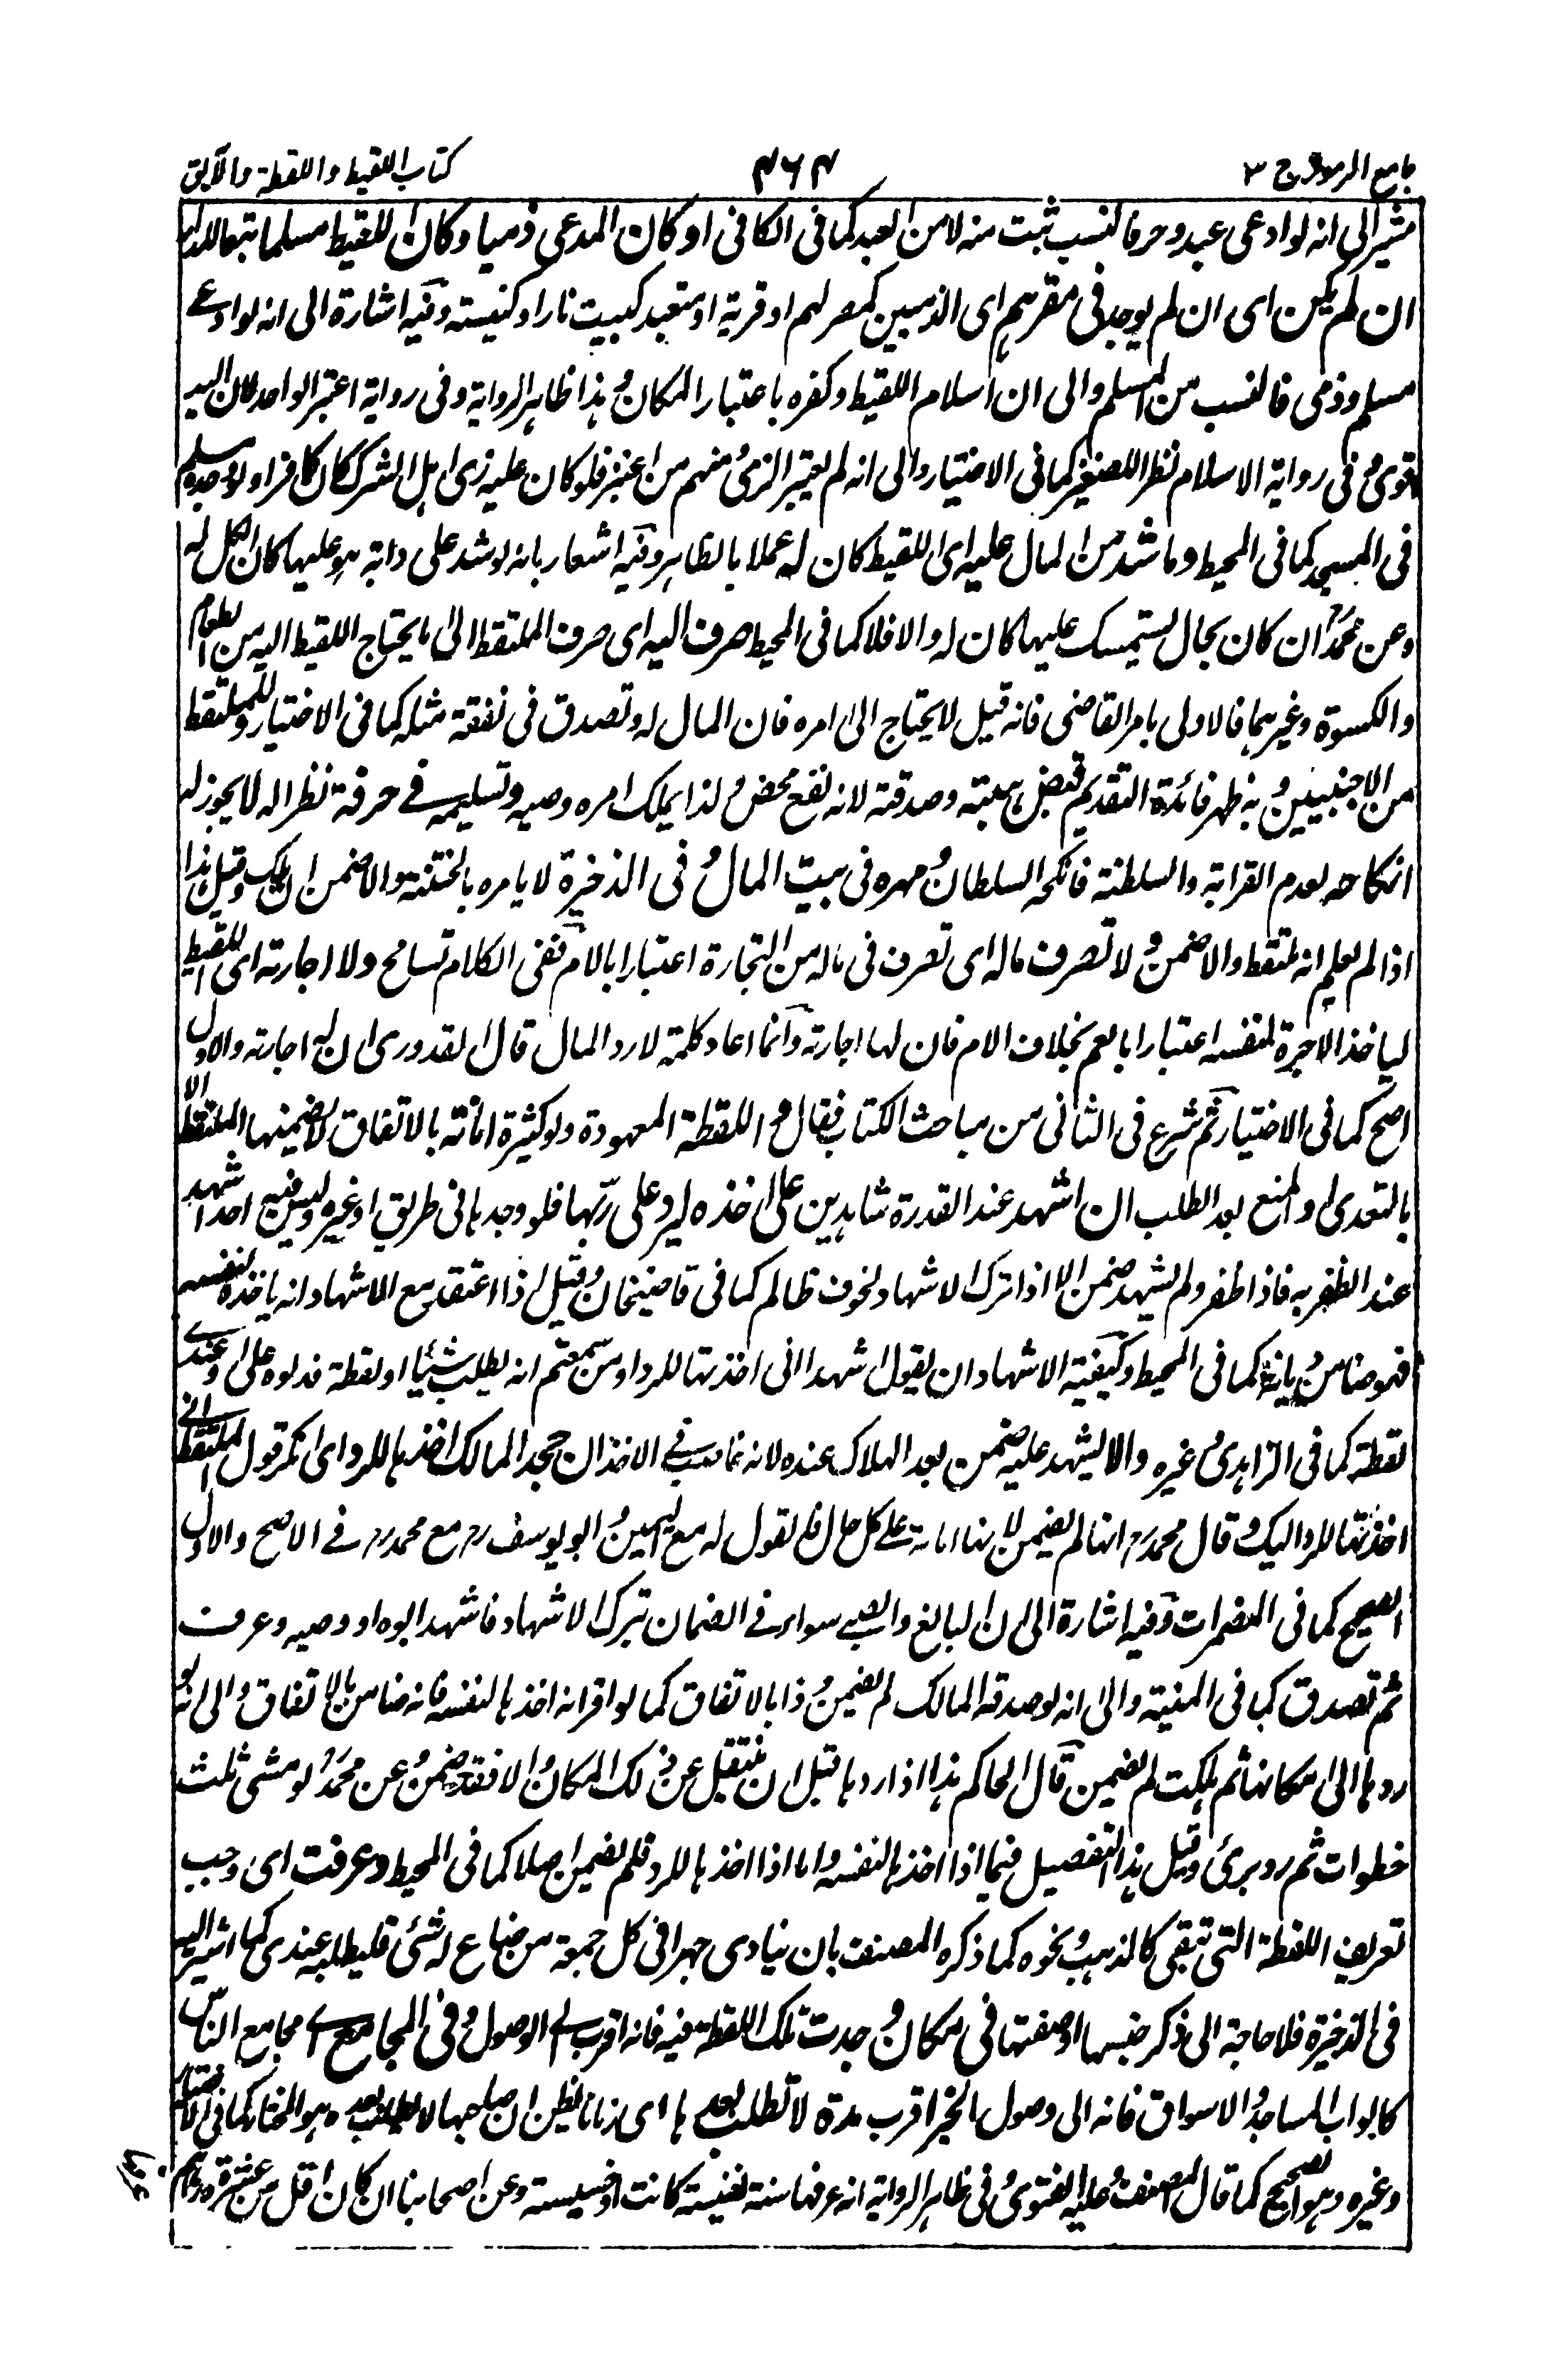 جامع الرموز ج ٣
٤٦٤
كتاب اللقيط واللقطة والآبق
مشير الى انه لو ادعى عبد وحر فالنسب ثبت منه لا من العبد كما فى الكافى او كان المدعى ذميا وكان اللقيط مسلما تبعا للدار
ان لم يكن اى ان لم يوجد فى مقرهم اى الذميين كمصر لهم او قرية او متعبد كبيت نار او كنيسة وفيه اشارة الى انه لو ادعى
مسلم وذمى فالنسب من المسلم والى ان اسلام اللقيط وكفره باعتبار المكان و هذا ظاهر الرواية وفى رواية اعتبر الواحد لان اليد
اقوى و فى رواية الاسلام نظرا للصغير كما فى الاختيار والى انه لم يعتبر الزى و منهم من اعتبر فلو كان عليه زى اهل الشرك كان كافرا ولو وجده مسلم
فى المسجد كما فى المحيط وما شد من المال عليه اى اللقيط كان له عملا بالظاهر وفيه اشعار بانه لو شد على دابة هو عليها كان الكل له
وعن محمد ان كان بحال يستمسك عليها كان له والا فلا كما فى المحيط صرف اليه اى صرف الملتقط الى ما يحتاج اللقيط اليه من الطعام
والكسوة وغيرهما فالاولى بامر القاضى فانه قيل لا يحتاج الى امره فان المال له وتصدق فى نفقة مثله كما فى الاختيار وللملتقط
من الاجنبيين و به ظهر فائدة التقديم قبض هبته وصدقته لانه نفع محض و لذا يملك امره وصيه وتسليمه فى حرفة نظرا له لا يجوز له
انكاحه لعدم القرابة والسلطنة فانكحه السلطان و مهره فى بيت المال و فى الذخيرة لا يامره بالختنة والا ضمن ان هلك وقيل هذا
اذا لم يعلم انه ملتقط والا ضمن و لا تصرف ماله اى تصرف فى ماله من التجارة اعتبارا بالام ففى الكلام تسامح ولا اجارته اى اللقيط
لياخذ الاجرة لنفسه اعتبارا بالعم بخلاف الام فان لها اجارته وانما اعاد كلمة لا رد المال قال القدورى ان له اجارته والاول
اصح كما فى الاختيار ثم شرع فى الثانى من مباحث الكتاب فقال و اللقطة المعهودة ولو كثيرة امانة بالاتفاق لا يضمنها الملتقط الا
بالتعدى او المنع بعد الطلب ان اشهد عند القدرة شاهدين على اخذه ليرد على ربها فلو وجدها فى طريق او غيره وليس فيه احد اشهد
عند الظفر به فاذا ظفر ولم يشهد ضمن الا اذا ترك الاشهاد لخوف ظالم كما فى قاضيخان و قيل اذا اعتقد مع الاشهاد انه ياخذه لنفسه
فهو ضامن ديانة كما فى المحيط وكيفية الاشهاد ان يقول اشهدا انى اخذتها للرد او من سمعتم انه يطلب شيئا او لقطة فدلوه على او عندى
لقطة كما فى الزاهدى و غيره والا يشهد عليه ضمن بعد الهلاك عنده لانه غاصب فى الاخذ ان جحد المالك اخذها للرد اى انكر قول الملتقط انى
اخذتها للرد اليك و قال محمد رح انها لم يضمن لانها امانة على كل حال فالقول له مع اليمين و ابو يوسف رح مع محمد رح فى الاصح والاول
الصحيح كما فى المضمرات وفيه اشارة الى ان البالغ والصبى سواء فى الضمان بترك الاشهاد فاشهد ابوه او وصيه وعرف
ثم تصدق كما فى المنية والى انه لو صدقه المالك لم يضمن و ذا بالاتفاق كما لو اقر انه اخذها لنفسه فانه ضامن بالاتفاق و الى انه لو
ردها الى مكانها ثم هلكت لم يضمن قال الحاكم هذا اذا ردها قبل ان ينتقل عن ذلك المكان و الا فقد ضمن و عن محمد لو مشى ثلث
خطوات ثم رد برئ وقيل هذا التفصيل فيما اذا اخذها لنفسه واما اذا اخذها للرد فلم يضمن اصلا كما فى المحيط وعرفت اى وجب
تعريف اللقطة التى تبقى كالذهب و نحوه كما ذكره المصنف بان ينادى جهرا فى كل جمعة من ضاع له شئ فليطلبه عندى كما اشير اليه
فى الذخيرة فلا حاجة الى ذكر جنسها او صفتها فى مكان و جدت تلك اللقطة فيه فانه اقرب الى الوصول و فى المجامع اى مجامع الناس
كابواب المساجد و الاسواق فانه الى وصول الخبر اقرب مدة لا تطلب بعدها اى زمانا يظن ان صاحبها لا يطلب بعده هو المختار كما فى الاختيار
وغيره وهو الصحيح كما قال المصنف و عليه الفتوى و فى ظاهر الرواية انه عرفها سنة نفيسة كانت او خسيسة وعن اصحابنا ان كان اقل من عشرة دراهم
عرفها